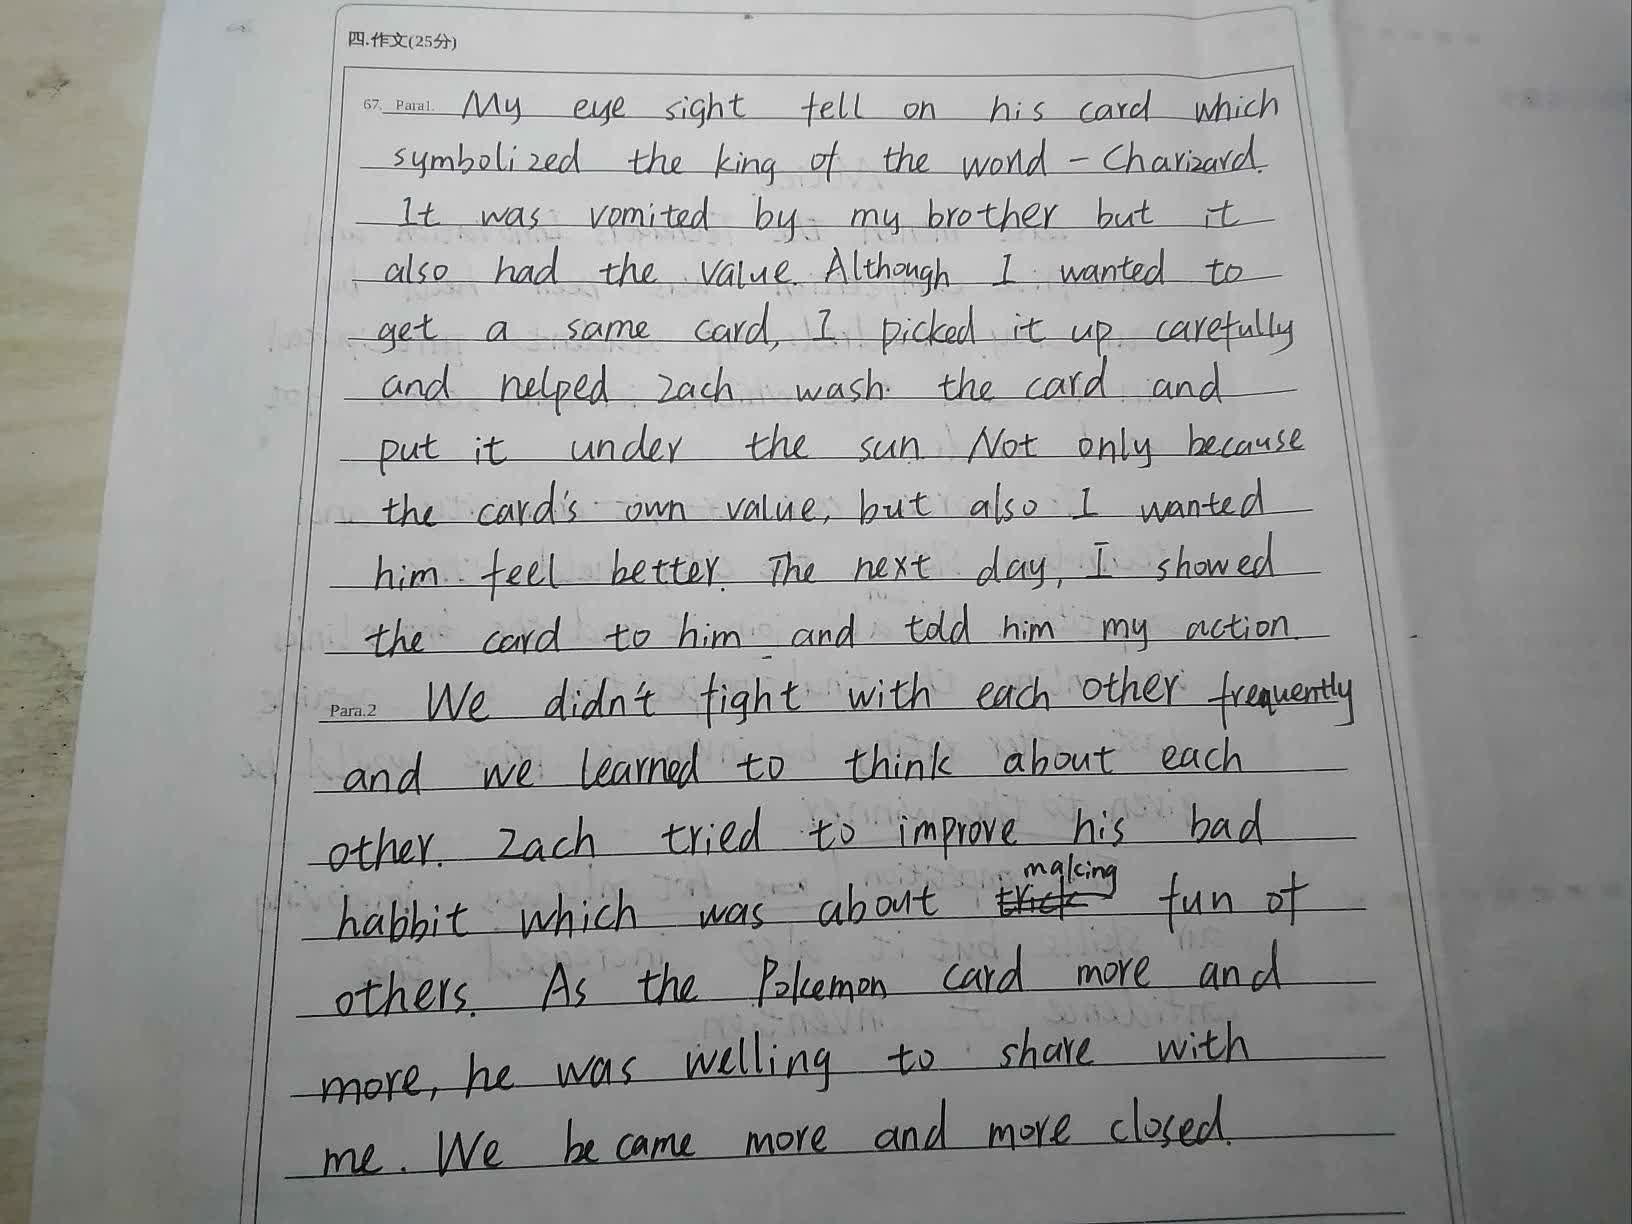 四.作文(25分)
67. Para1. My eye sight fell on his card which
symbolized the king of the world - Charizard.
It was vomited by my brother but it
also had the value. Although I wanted to
get a same card, I picked it up carefully
and helped Zach wash the card and
put it under the sun. Not only because
the card's own value, but also I wanted
him feel better. The next day, I showed
the card to him and told him my action.
Para.2 We didn't fight with each other frequently
and we learned to think about each
other. Zach tried to improve his bad
habbit which was about making fun of
others. As the Pokemon card more and
more, he was welling to share with
me. We became more and more closed.